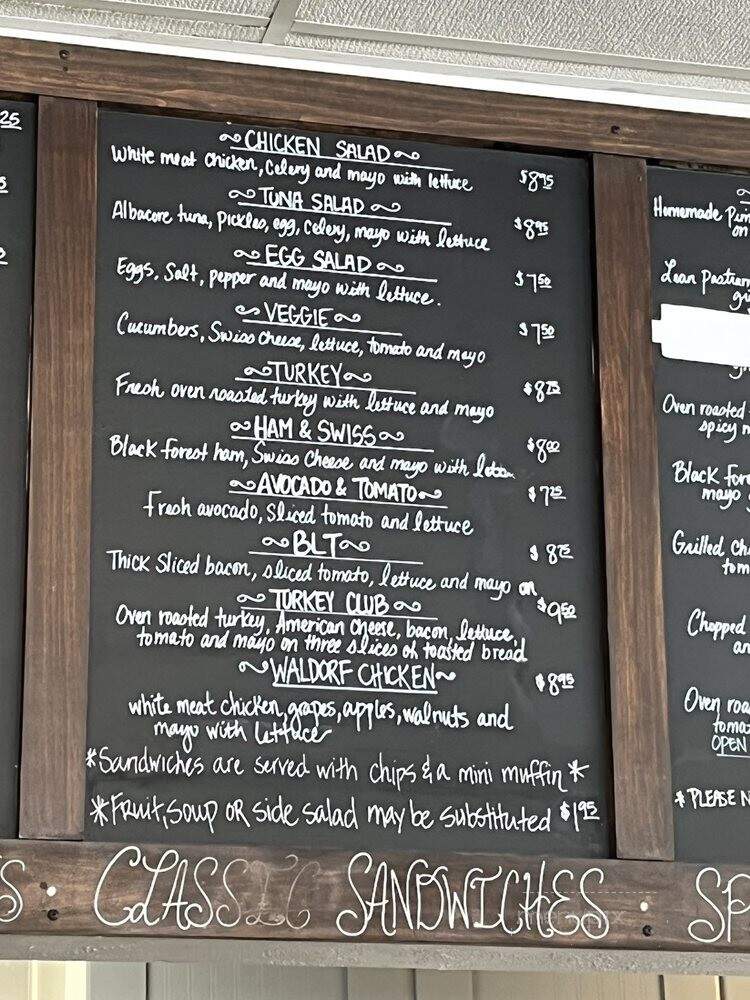 25
CHICKEN SALAD
White meat Chicken, Celery and mayo with lettuce $8.95
TUNA SALAD
Albacore tuna, Pickles, egg, Celery, mayo with lettuce $8.95
EGG SALAD
Eggs, Salt, pepper and mayo with lettuce. $7.50
VEGGIE
Cucumbers, Swiss cheese, lettuce, tomato and mayo $7.50
TURKEY
Fresh oven roasted turkey with lettuce and mayo $8.75
HAM & SWISS
Black forest ham, Swiss Cheese and mayo with $8.00
AVOCADO & TOMATO
fresh avocado, sliced tomato and lettuce $7.25
BLT
Thick sliced bacon, sliced tomato, lettuce and mayo on $8.75
TURKEY CLUB
Oven roasted turkey, American cheese, bacon, lettuce, $9.50
tomato and mayo on three slices of toasted bread
WALDORF CHICKEN
white meat chicken, grapes, apples, walnuts and $8.95
mayo with lettuce
*Sandwiches are served with chips & a mini muffin*
*Fruit, soup OR side salad may be substituted $1.95
S • CLASSIC SANDWICHES • SP
Homemade Pim
on
Lean Pastram
Oven roasted
spicy m
Black fore
mayo
Grilled ch
tom
Chopped
an
Oven roa
tomat
OPEN
* PLEASE N